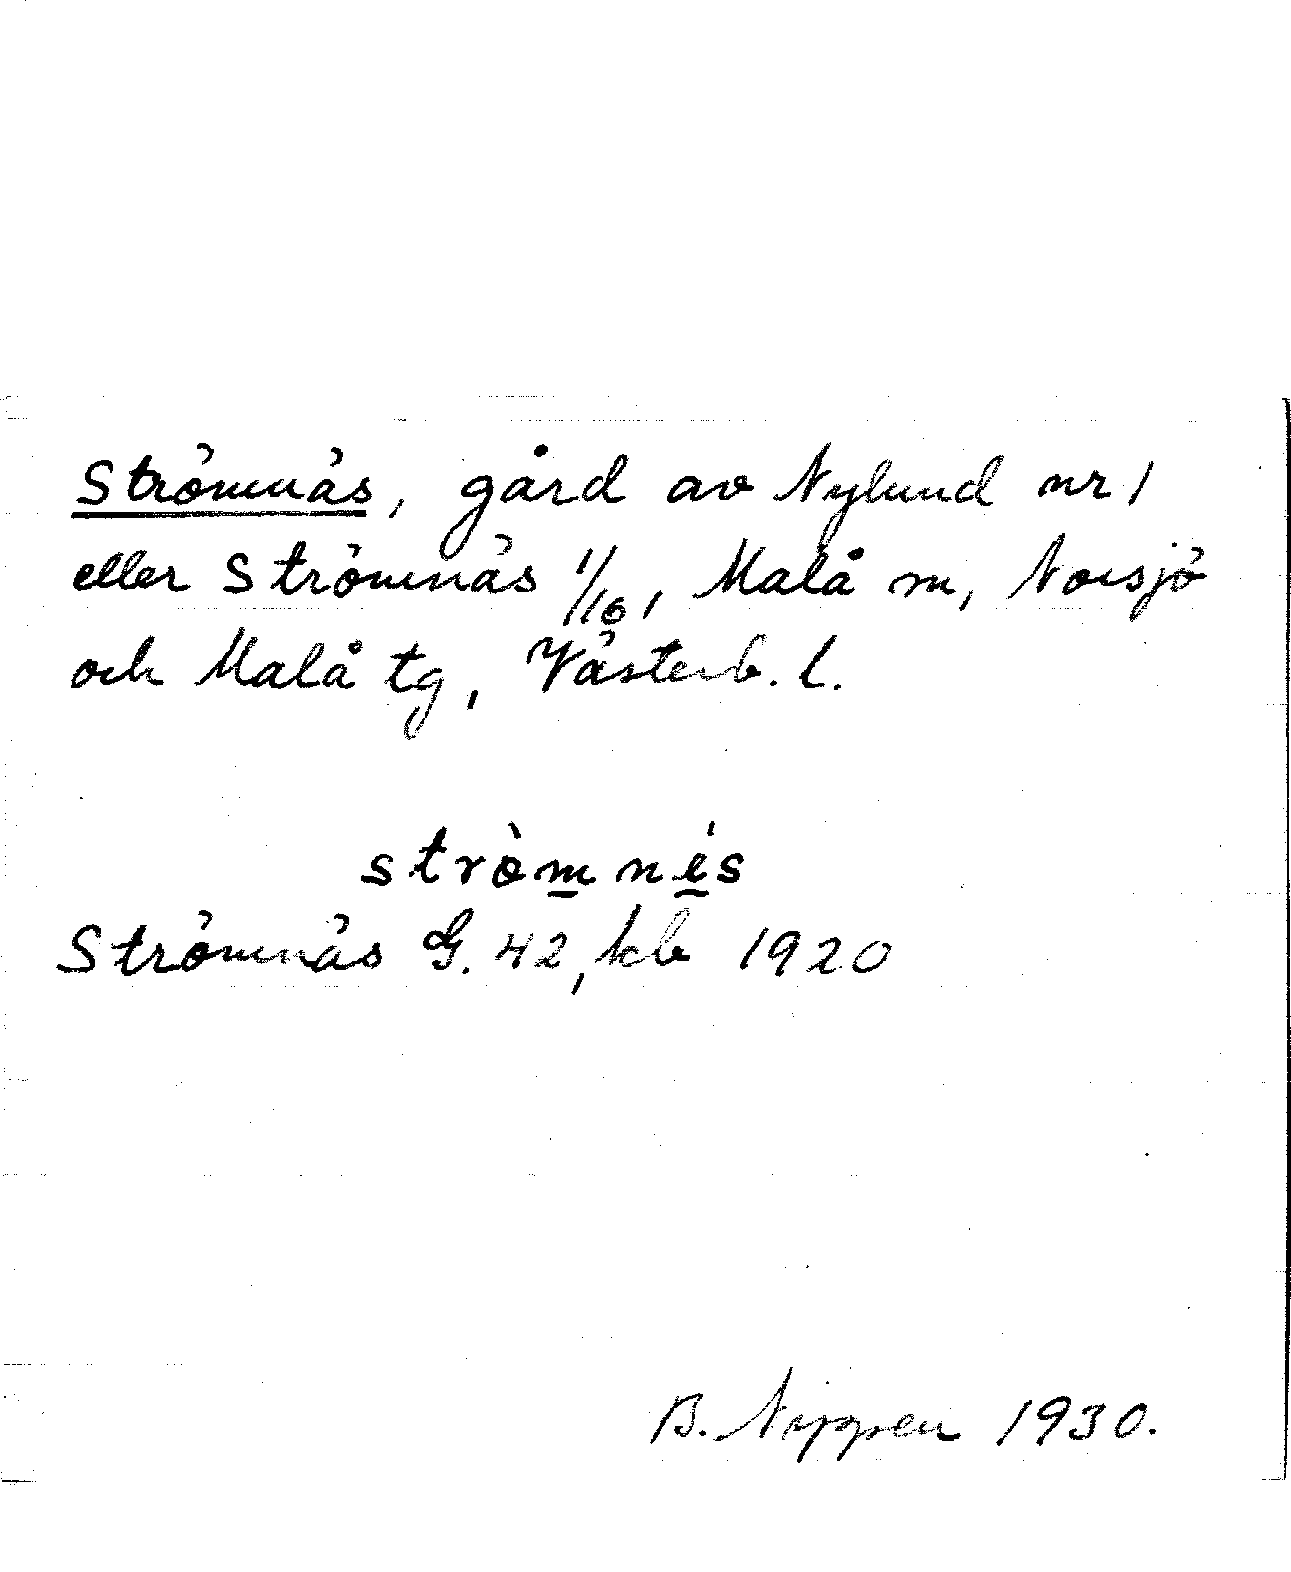 Strömnäs, gård av Nylund nr 1
eller Strömnäs 1/16, Malå m, Norsjö
och Malå tg, Västerb. l.
strò̱m nés
Strömnäs G. 42, kb 1920
B. Nippen 1930.